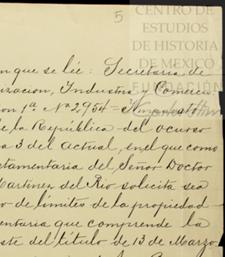 5
CENTRO DE
ESTUDIOS
DE HISTORIA
DE MÉXICO
FUNDACIÓN
que se lée: Secretaria de
ización, Industria y Comercio
on 1ª. Nº 2954=
de la República del ocurso
a 3 del actual, en el que como
tamentaria del Señor Doctor
Martinez del Rio solicita sea
o de limites de la propiedad
entaria que comprende la
ste del titulo de 13 de Marzo